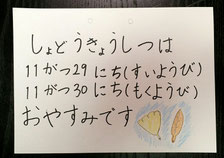 しょどうきょうしつは
11がつ29にち(すいようび)
11がつ30にち(もくようび)
おやすみです